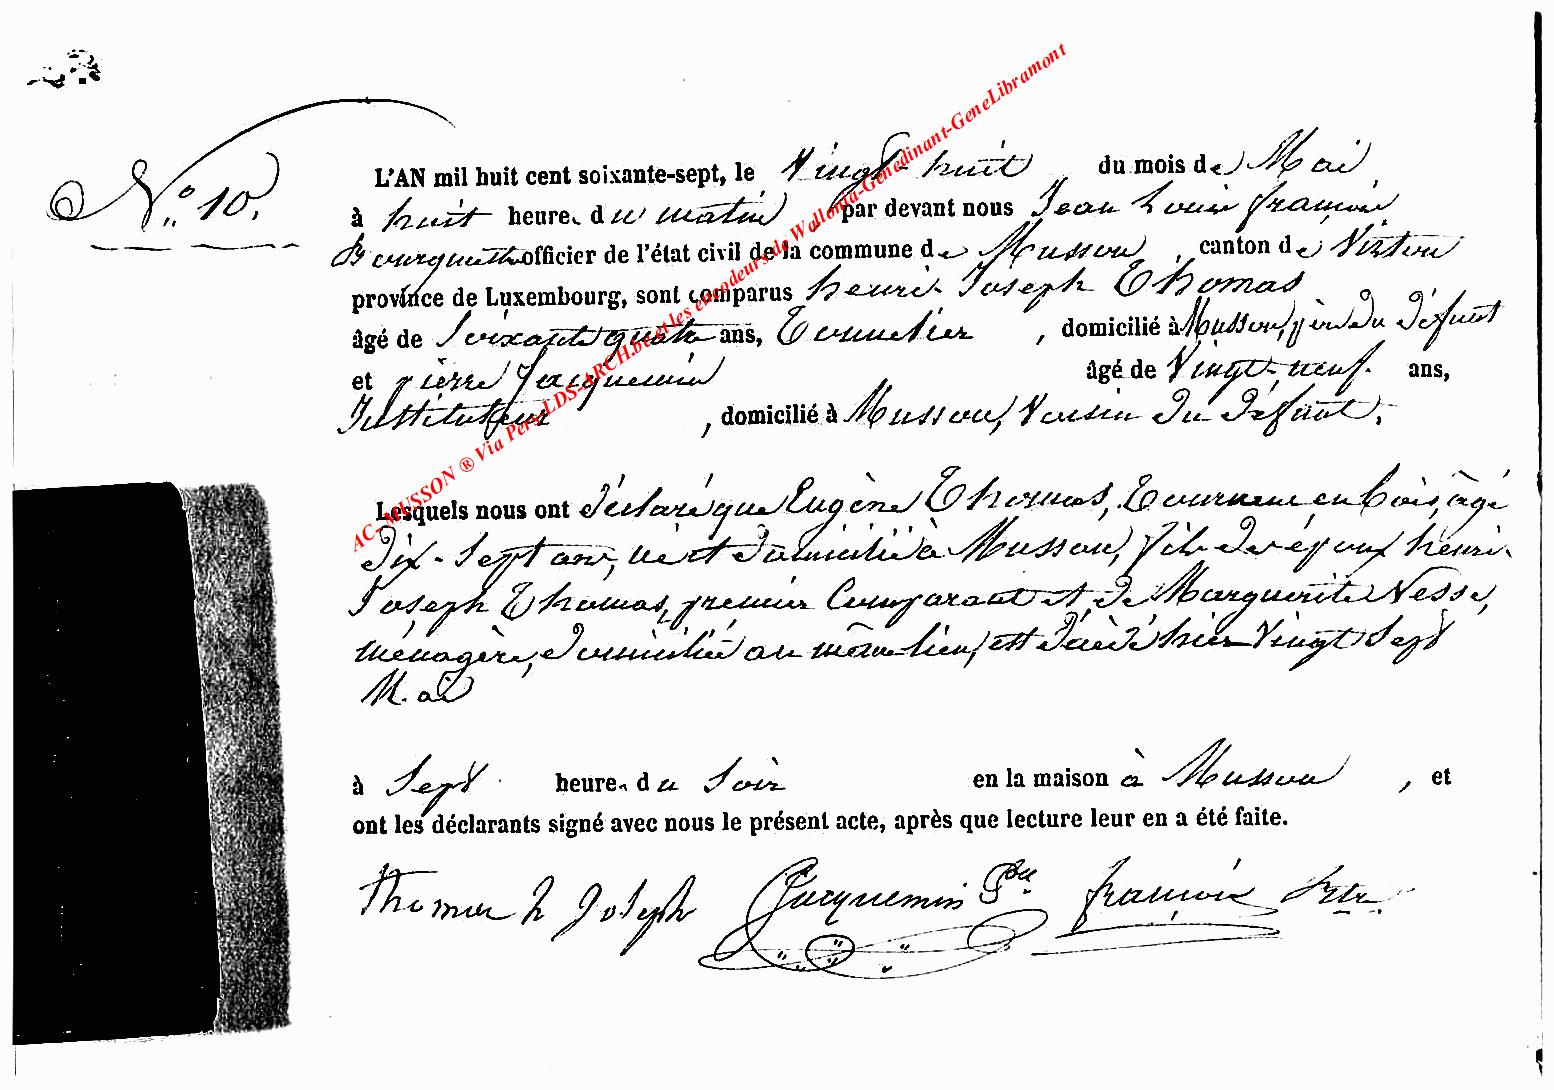 N.° 10.
L'AN mil huit cent soixante-sept, le Vingt-huit du mois de Mai
à huit heure. du matin par devant nous Jean Louis françois
officier de l'état civil de la commune de Musson, canton de Virton
province de Luxembourg, sont comparus henri-Joseph Thomas
âgé de Soixante quatre ans, Tonnelier, domicilié à Musson, père du défunt
et pierre Jacquemin âgé de Vingt-neuf. ans,
Instituteur, domicilié à Musson, Voisin du défunt.
Lesquels nous ont déclaré que Eugène Thomas, Tourneur en bois, âgé
dix-Sept ans, né et domicilié à Musson, fils des époux henri-
Joseph Thomas, premier Comparant et de Marguerite Nesse,
ménagère, domiciliée au même lieu, est décédé hier Vingt Sept
Mai
à Sept heure. du Soir en la maison à Musson, et
ont les déclarants signé avec nous le présent acte, après que lecture leur en a été faite.
Thomas h Joseph Jacquemin françois
AC-MUSSON ® Via Pers-LDS-ARCH.be et les encodeurs de Wallonia-Genedinant-GeneLibramont